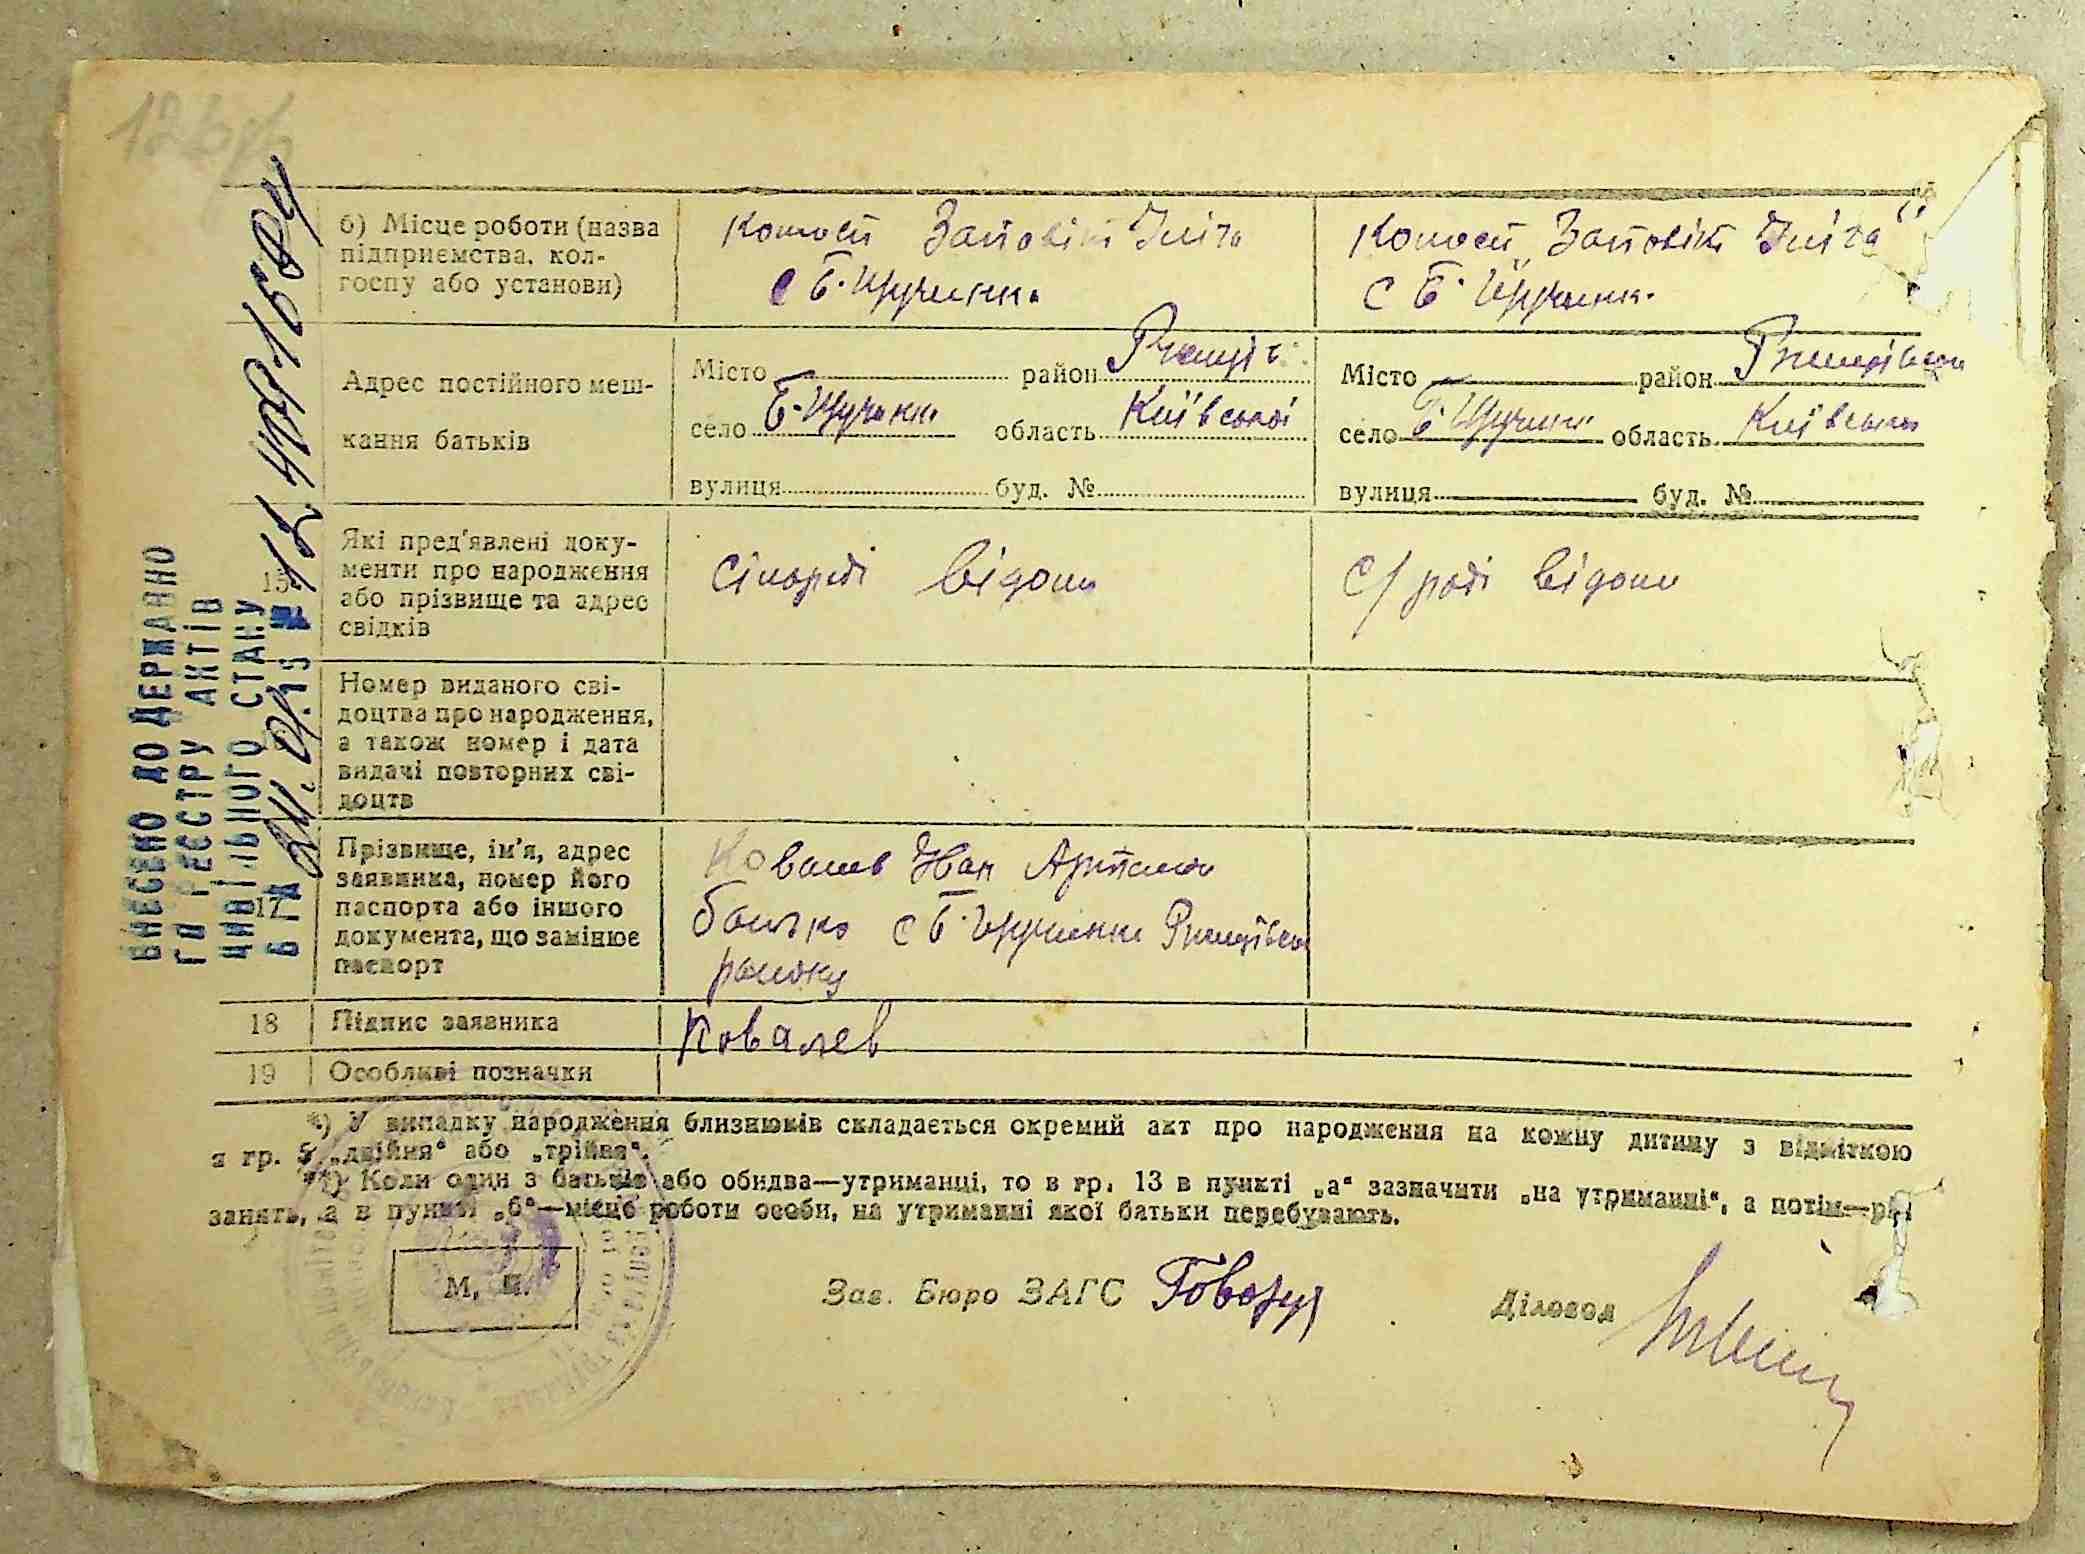 б) Місце роботи (назва
підприємства, кол-
госпу або установи)
Колгосп Заповіт Ілліча
с Б. Щучинка
Колгосп „Заповіт Ілліча“
с Б. Щучинка
Адрес постійного меш-
кання батьків
Місто район Ржищів
село Б-Щучинка область Київської
вулиця буд. №
Місто район Ржищівськ
село Б Щучинка область Київська
вулиця буд. №
15
Які пред'явлені доку-
менти про народження
або прізвище та адрес
свідків
сільраді відомі
с/раді відомі
16
Номер виданого сві-
доцтва про народження,
а також номер і дата
видачі повторних сві-
доцтв
17
Прізвище, ім'я, адрес
заявника, номер його
паспорта або іншого
документа, що замінює
паспорт
Ковалев Іван
батько с Б. Щучинка Ржищівськ
району
18 Підпис заявника
Ковалев
19 Особливі позначки
*) У випадку народження близнюків складається окремий акт про народження на кожну дитину з відміткою
в гр. 5 „двійня“ або „трійня“.
**) Коли один з батьків або обидва—утриманці, то в гр. 13 в пункті „а“ зазначити „на утриманні“, а потім—рід
занять, а в пункті „б“—місце роботи особи, на утриманні якої батьки перебувають.
М. П.
Зав. Бюро ЗАГС
Діловод
ВНЕСЕНО ДО ДЕРЖАВНО
ГО РЕЄСТРУ АКТІВ
ЦИВІЛЬНОГО СТАНУ